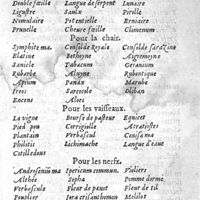 Double fœille Langue de serpent Lunaire
Ligustre Saulx Pirolle
Nombulaire Potentielle Erniaire
Prunelle Cheure fœille Climenum
Pour la chair.
Symphite ma. Consolde Royale Consolde sarazine
Blatine Bethoyne Aigremoyne
Saniele Tabacum Geranium
Rubarbe Aluyne Robentique
Apium Panax Marube
Fres Sarcocole Oliban
Encens Aloes
Pour les vaisseaux.
La vigne Bourse de pasteur Equicet
Pied peu Corrigiolle Atratofites
Plantain Verbascul Consif ma
Philitis Lichimache Langue d'eaut
Cotilledone
Pour les nerfz.
Androsenius ma Ipericum commun. Vuliere
Althee Sepha Pomme dorme,
Verbascule Fleur de pauot Fleur de til
Peuplier Iera crisanthemon Melilot